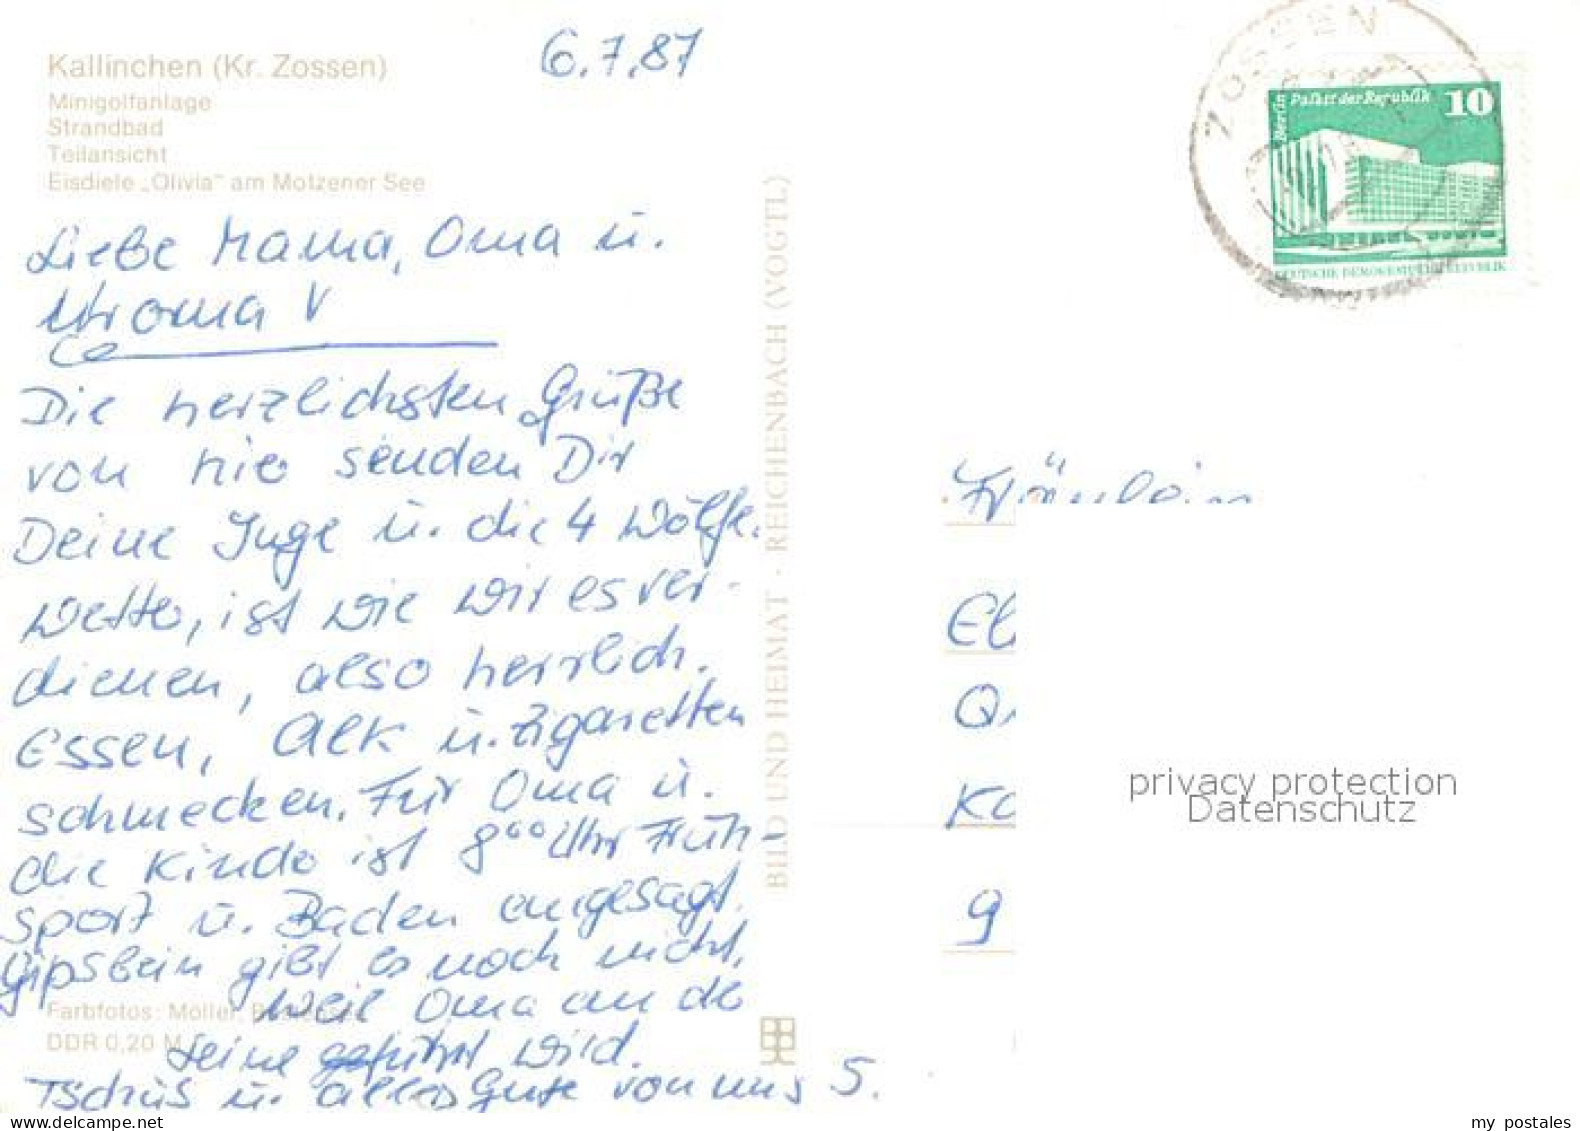 Kallinchen (Kr. Zossen)
Minigolfanlage
Strandbad
Teilansicht
Eisdiele „Olivia" am Motzener See
6.7.87
Liebe Mama, Oma u.
Uroma
Die herzlichsten Grüße
von hier senden Dir
Deine Inge u. die 4 Wölfe.
Wetter, ist wie wir es ver-
dienen, also herrlich.
Essen, Alk u. Zigaretten
schmecken. Für Oma u.
die Kinder ist 8°° Uhr Früh-
sport u. Baden angesagt.
Gipsbein gibt es noch nicht,
weil Oma an der
Leine geführt wird.
Tschüs u. alles Gute von uns 5.
Farbfotos: Möller,
DDR 0,20 M
BILD UND HEIMAT · REICHENBACH (VOGTL)
ZOSSEN
Berlin Palast der Republik 10
DEUTSCHE DEMOKRATISCHE REPUBLIK
Fräulein
privacy protection
Datenschutz
my postales